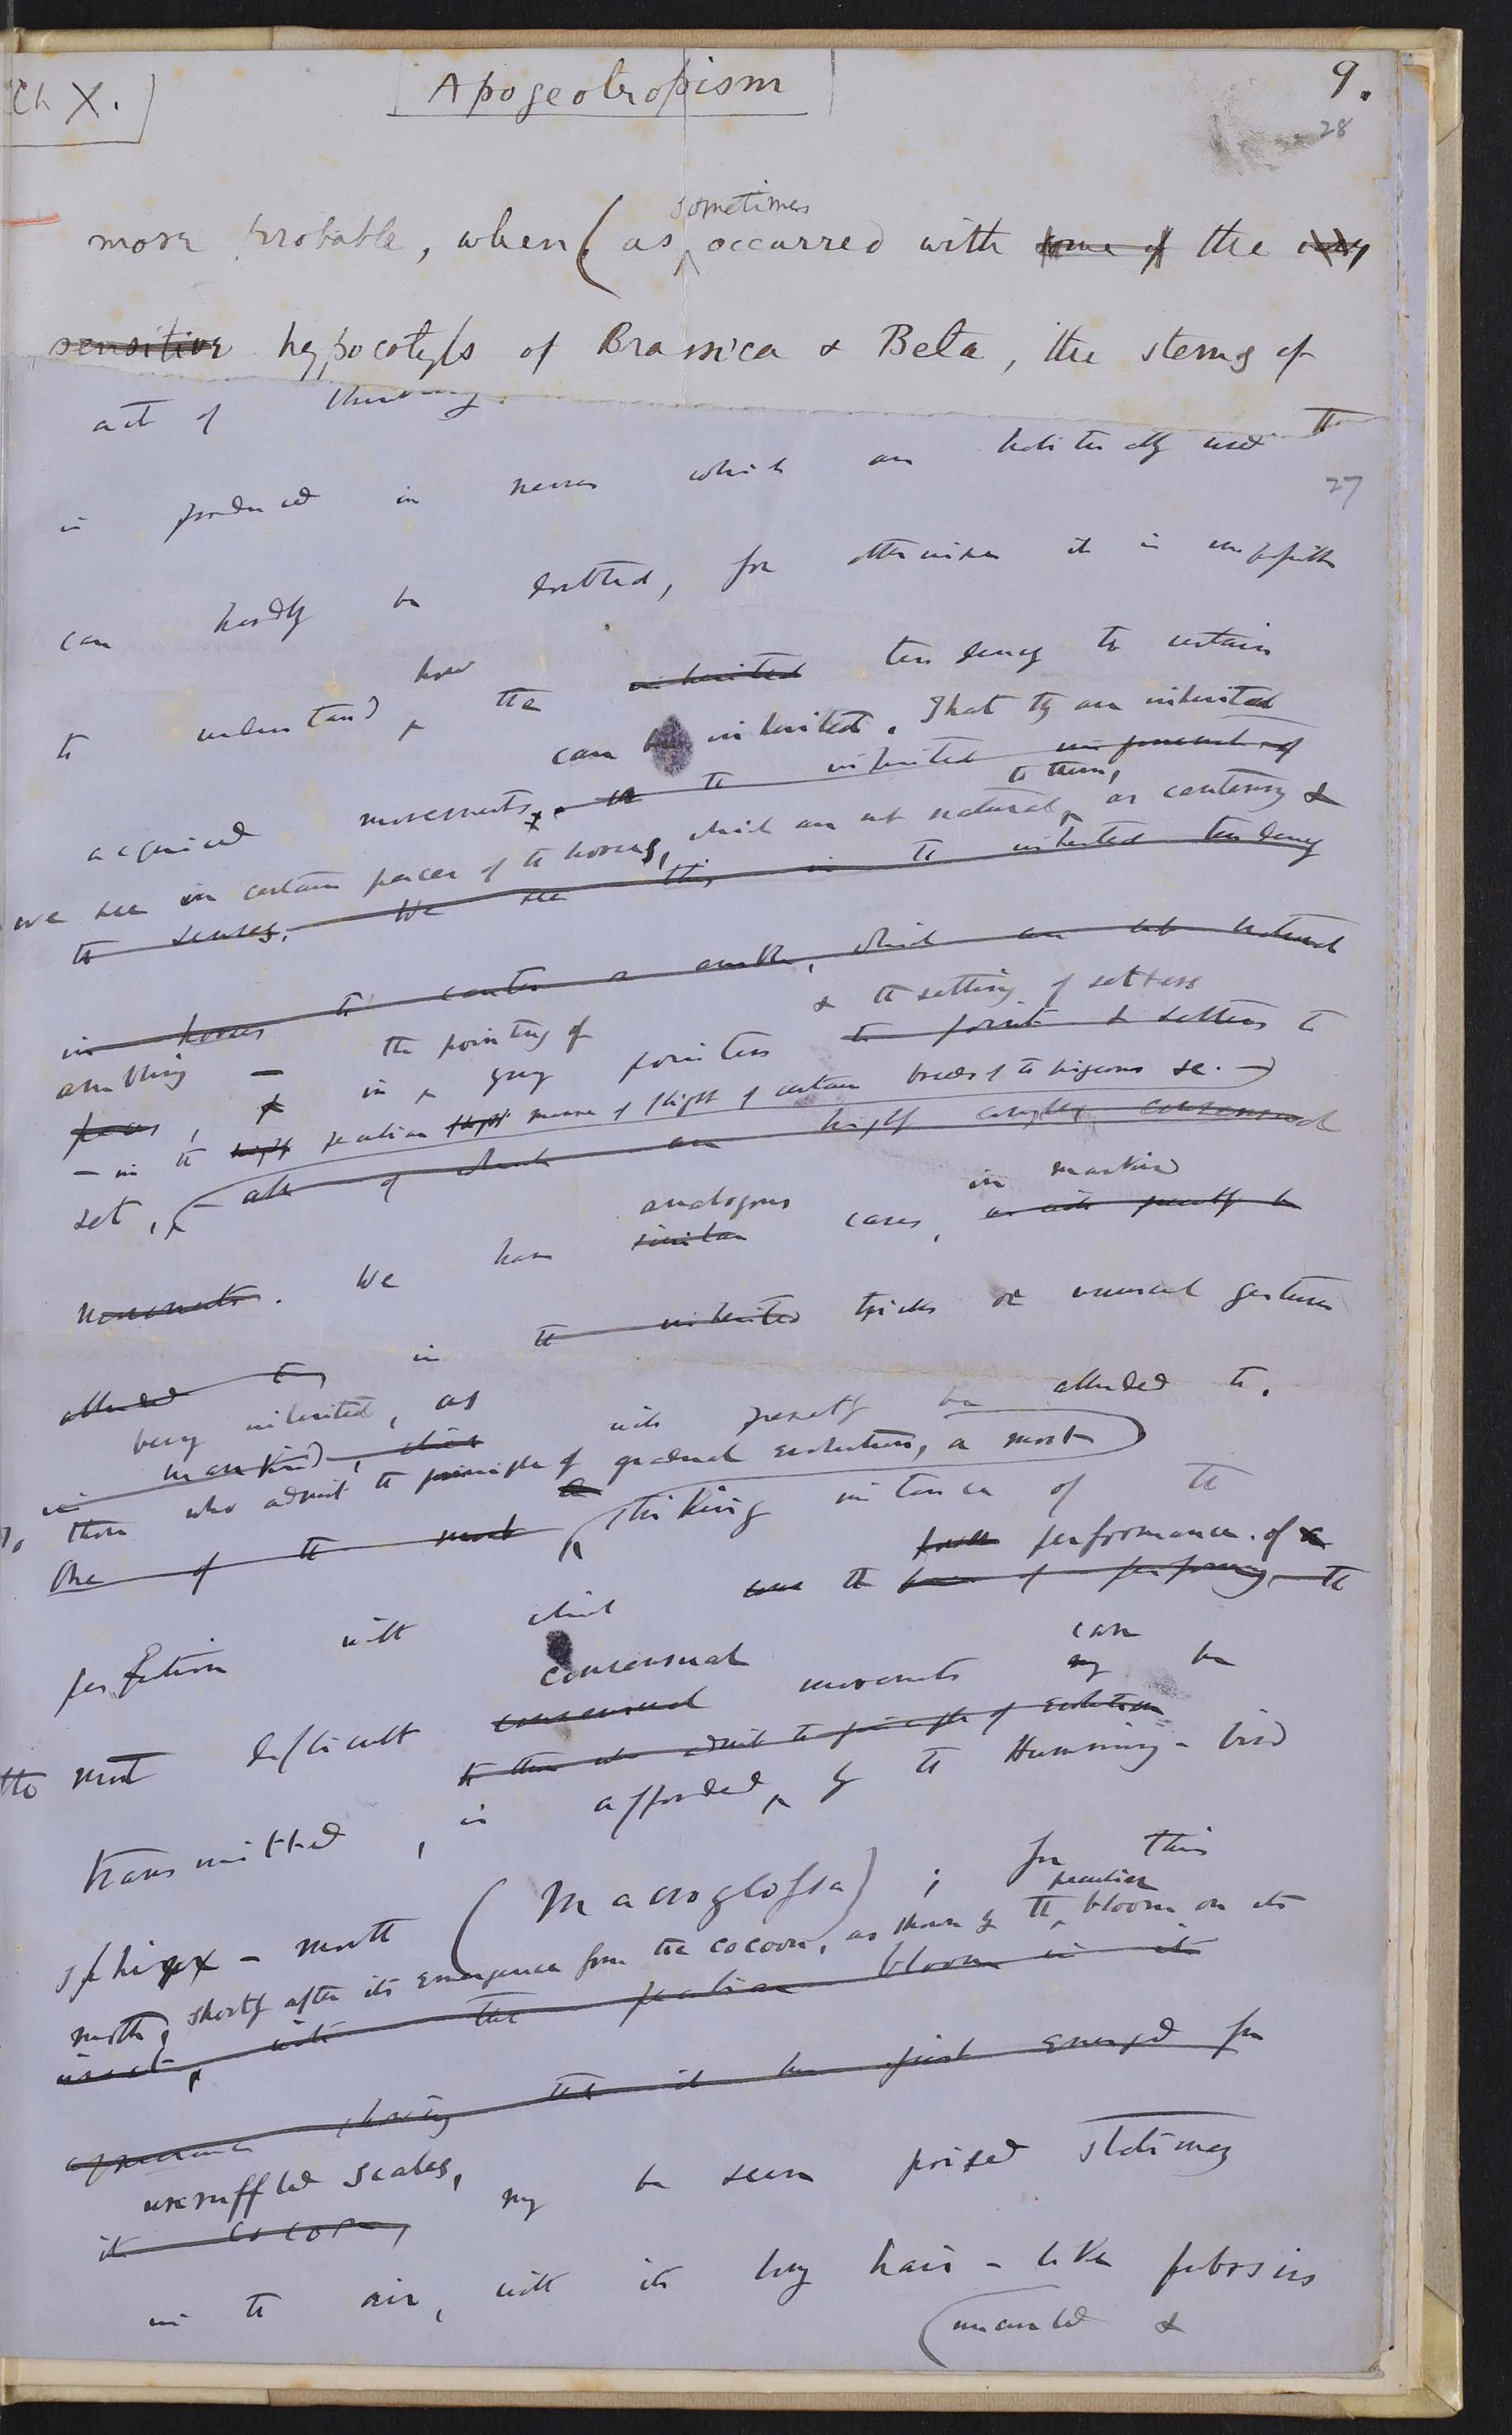 Ch X.
Apogeotropism
9.
28
sometimes
more probable, when (as occurred with some of the very
sensitive hypocotyls of Brassica & Beta, the stems of
act of thinking.
27
is produced in nerves which are habitually used
can hardly be doubted, for otherwise it is impossible
to understand how the inherited tendency to certain
can be inherited. That they are inherited
acquired movements
to them,
we see in certain paces of the horses, which are not natural, as cantering &
the senses. We see this in the inherited tendency
in horses to canter or amble, which are not natural
& the setting of setters
ambling — the pointing of
paces, & in young pointers to point & setters to
— in the flight peculiar flight manner of flight of certain breeds of the pigeons &c. —
set, — all of which are highly complex consensual
analogous in mankind
movements. We have similar cases, as will presently be
alluded to, in the inherited tricks or unusual gestures
being inherited, as will presently be alluded to.
in mankind, which
To those who admit the principle of gradual evolution, a most
One of the most striking instance of the
performance of
perfection with which the power of performing the
consensual can
the most difficult consensual movements may be
to those who admit the principle of evolution
transmitted, is afforded, by the Humming-bird
sphinx-moth (Macroglossa); for this
peculiar
moth, shortly after its emergence from the cocoon, as shown by the bloom on its
insect, with the peculiar bloom in its
appearance showing that it has just emerged from
unruffled scales, may be seen poised stationary
its cocoon,
in the air, with its long hair-like proboscis
(uncurled &